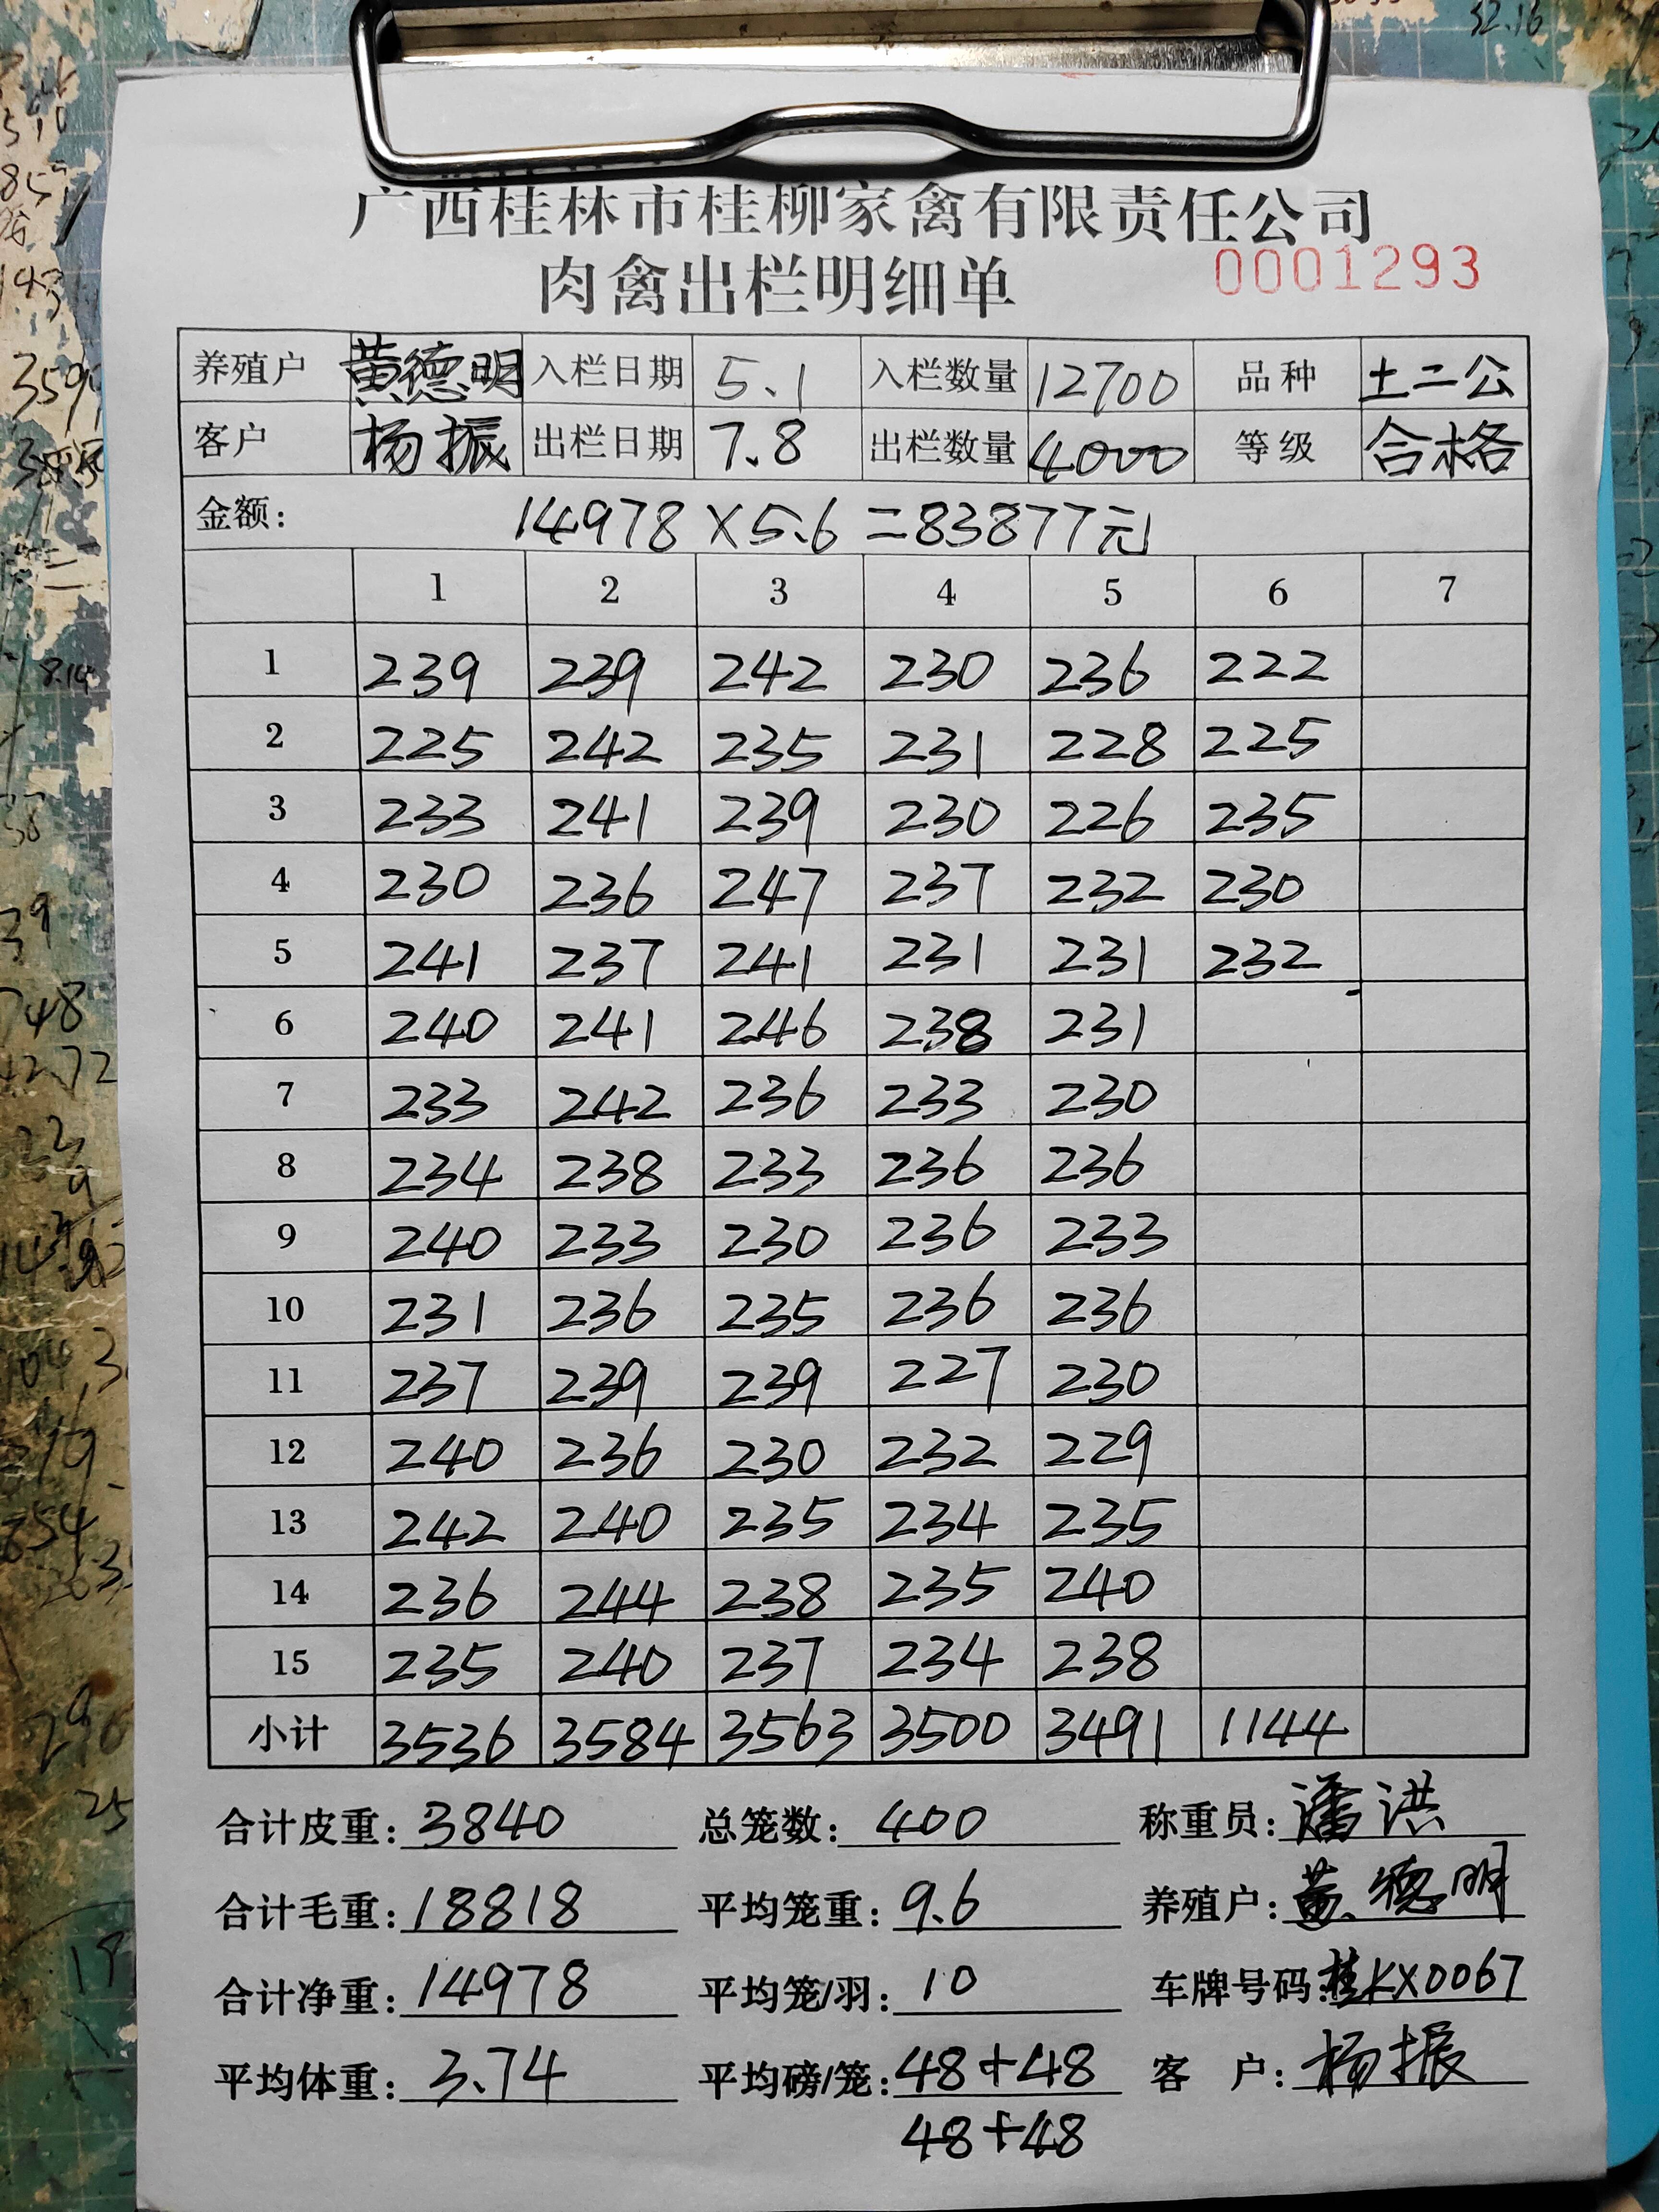 广西桂林市桂柳家禽有限责任公司
肉禽出栏明细单 0001293
养殖户 黄德明 入栏日期 5.1 入栏数量 12700 品种 土二公
客户 杨振 出栏日期 7.8 出栏数量 4000 等级 合格
金额: 14978×5.6=83877元
1 2 3 4 5 6 7
1 239 239 242 230 236 222
2 225 242 235 231 228 225
3 233 241 239 230 226 235
4 230 236 247 237 232 230
5 241 237 241 231 231 232
6 240 241 246 238 231
7 233 242 236 233 230
8 234 238 233 236 236
9 240 233 230 236 233
10 231 236 235 236 236
11 237 239 239 227 230
12 240 236 230 232 229
13 242 240 235 234 235
14 236 244 238 235 240
15 235 240 237 234 238
小计 3536 3584 3563 3500 3491 1144
合计皮重: 3840 总笼数: 400 称重员: 潘洪
合计毛重: 18818 平均笼重: 9.6 养殖户: 黄德明
合计净重: 14978 平均笼/羽: 10 车牌号码: 桂KX0067
平均体重: 3.74 平均磅/笼: 48+48 客户: 杨振
48+48